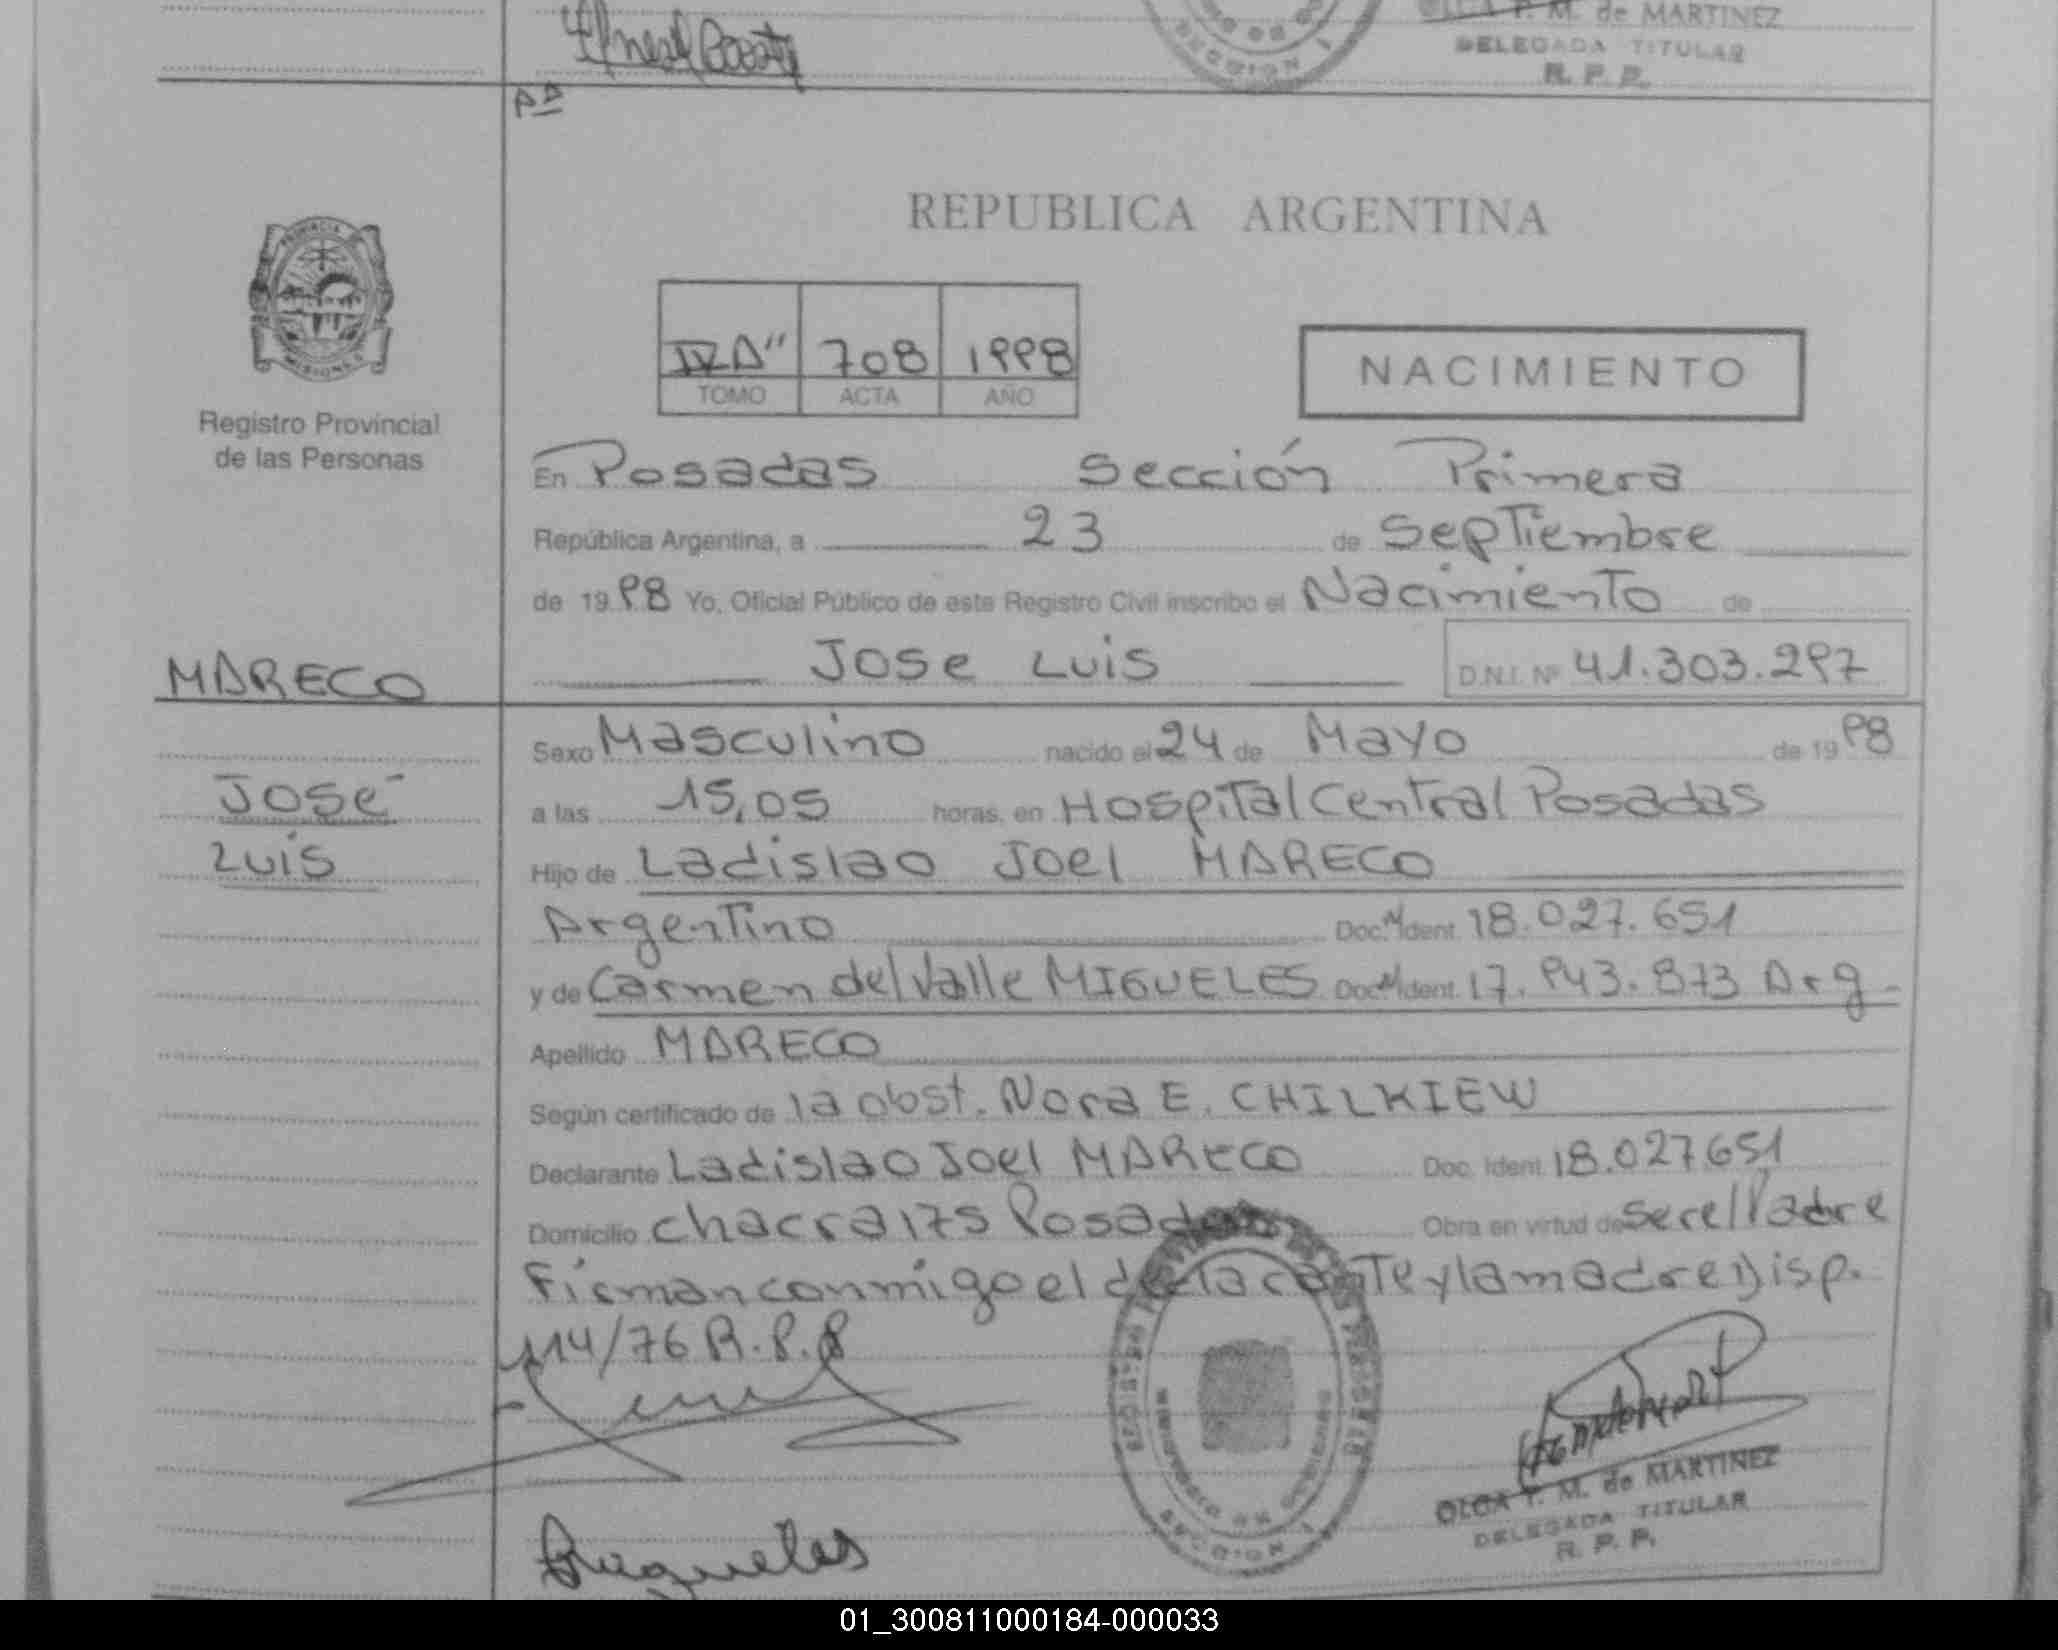 P. M. de MARTINEZ
DELEGADA TITULAR
R. P. P.
REPUBLICA ARGENTINA
PROVINCIA
MISIONES
Registro Provincial
de las Personas
708 1998
TOMO ACTA AÑO
NACIMIENTO
En Posadas Sección Primera
República Argentina, a 23 de Septiembre
de 1998 Yo, Oficial Público de este Registro Civil inscribo el Nacimiento de
Jose Luis D.N.I. Nº 41.303.297
MARECO
José
Luis
Sexo Masculino nacido el 24 de Mayo de 1998
a las 15,05 horas, en Hospital Central Posadas
Hijo de Ladislao Joel MARECO
Argentino Doc. Ident. 18.027.651
y de Carmen del Valle MIGUELES Doc. Ident. 17.943.873 Arg.
Apellido MARECO
Según certificado de la obst. Nora E. CHILKIEW
Declarante Ladislao Joel MARECO Doc. Ident. 18.027.651
Domicilio chacra 175 Posadas Obra en virtud de ser el Padre
Firman conmigo el declarante y la madre Disp.
114/76 R.P.P
SECCION 1
OLGA P. M. de MARTINEZ
DELEGADA TITULAR
R. P. P.
Migueles
01_300811000184-000033